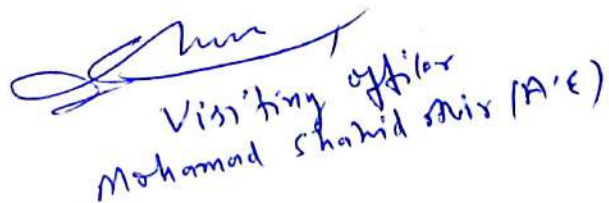 Visiting officer
Mohamad Shahid Mir (A.E)